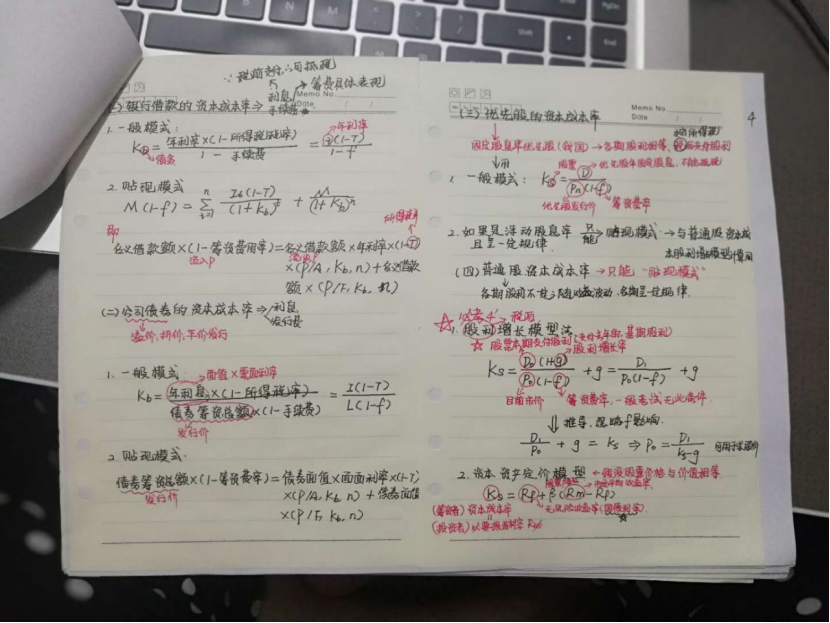 (一)银行借款的资本成本率⇒利息
手续费
筹费具体表现
Memo No.
Date / /
1.一般模式:
年利率×(1-所得税税率)
1-手续费
= i(1-T)
1-f
年利率
债务
2.贴现模式
M(1-f) = Σ It(1-T)/(1+Kb)^t + M/(1+Kb)^n
即
所得税率
名义借款额×(1-筹资费用率)=名义借款额×年利率×(1-T)
流入P
×(P/A, Kb, n)+名义借款
额×(P/F, Kb, n)
(二)公司债券的资本成本率⇒利息
发行费
溢价、折价、平价发行
1.一般模式:
面值×票面利率
Kb = 年利息×(1-所得税率)/债券筹资总额×(1-手续费) = I(1-T)/L(1-f)
发行价
2.贴现模式:
债券筹资总额×(1-筹资费率)=债券面值×面面利率×(1-T)
发行价
×(P/A, Kb, n)+债券面值
×(P/F, Kb, n)
Memo No.
Date / /
4
(三)优先股的资本成本率
固定股息率优先股→各期股利相等
1.一般模式:
D
Pn(1-f)
优先股发行价
筹资费率
2.如果是浮动股息率 只能 贴现模式→与普通股资本成
且呈一定规律
本股利增长模型
(四)普通股资本成本率→只能“贴现模式”
各期股利不定,随收益波动,各期呈一定规律.
☆必考4'→税后
1.股利增长模型法
☆股票本期支付股利
股利增长率
Ks = D0(1+g)/P0(1-f) + g = D1/P0(1-f) + g
目前市价
筹资费率,一般考试无此条件
⇓推导,忽略f影响.
D1/P0 + g = Ks ⇒ P0 = D1/Ks-g
2.资本资产定价模型←假设股票价格与价值相等
Ks = Rf+β(Rm-Rf)
(筹资者)资本成本率
无风险收益率
(投资者)必要报酬率